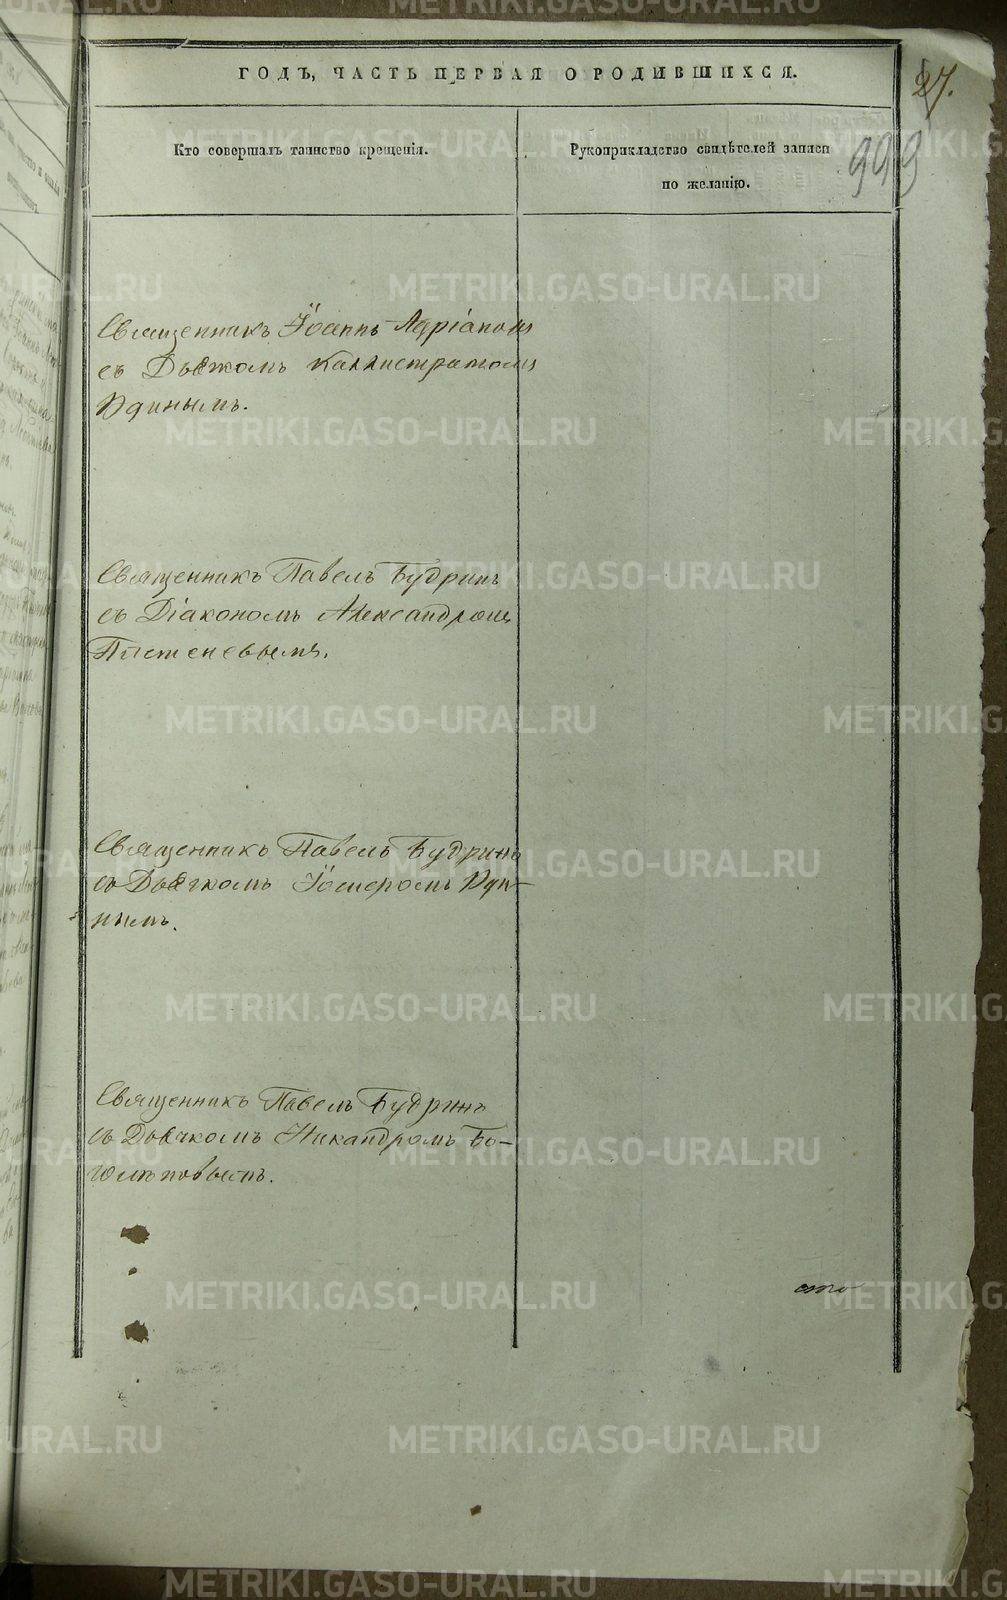 ГОДЪ, ЧАСТЬ ПЕРВАЯ О РОДИВШИХСЯ.
27.
993
Кто совершалъ таинство крещенія.
Рукоприкладство свидѣтелей записи
по желанію.
Священникъ Іоаннъ Адріановъ
съ Дьячкомъ Каллистратомъ
Удинымъ.
Священникъ Павелъ Будринъ
съ Діакономъ Александромъ
Священникъ Павелъ Будринъ
съ Дьячкомъ Уди-
нымъ.
Священникъ Павелъ Будринъ
съ Дьячкомъ Никандромъ Бо-
голѣповымъ.
METRIKI.GASO-URAL.RU